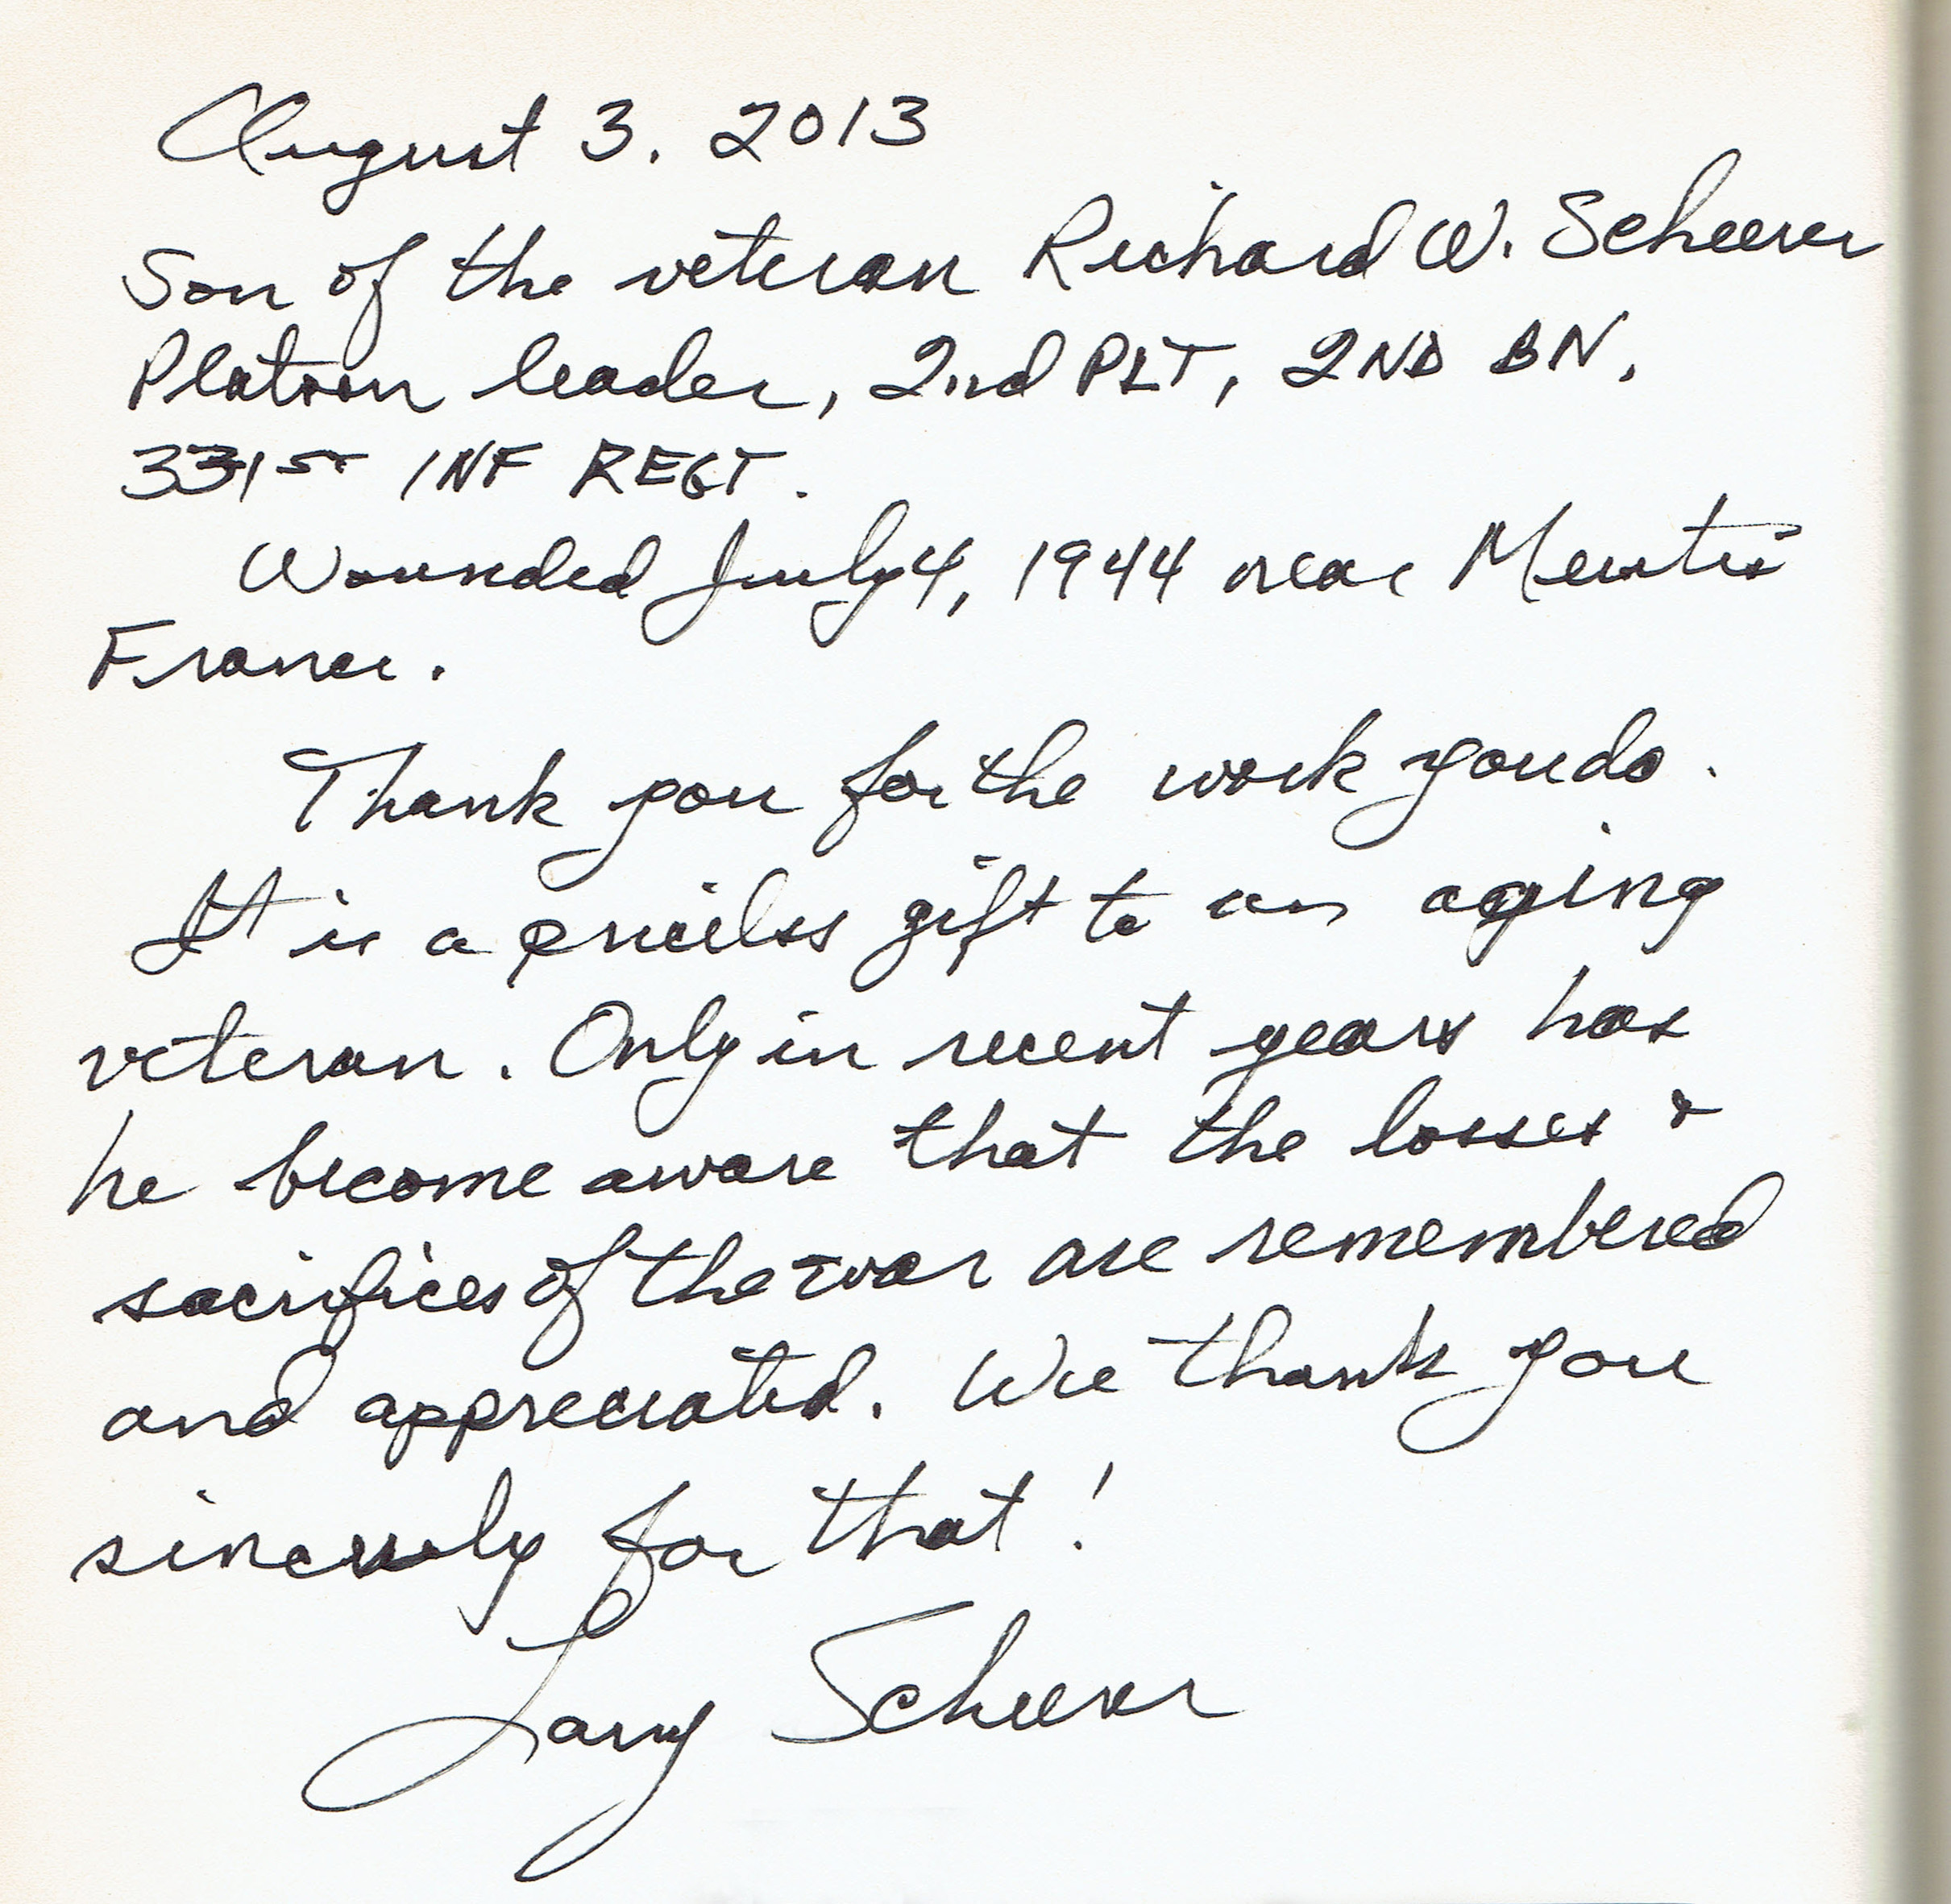 August 3, 2013
Son of the veteran Richard W. Scheerer
Platoon leader, 2nd PLT, 2ND BN,
331ST INF REGT.
Wounded July 4, 1944 near
France.
Thank you for the work you do.
It is a priceless gift to an aging
veteran. Only in recent years has
he become aware that the losses &
sacrifices of the war are remembered
and appreciated. We thank you
sincerely for that!
Larry Scheerer